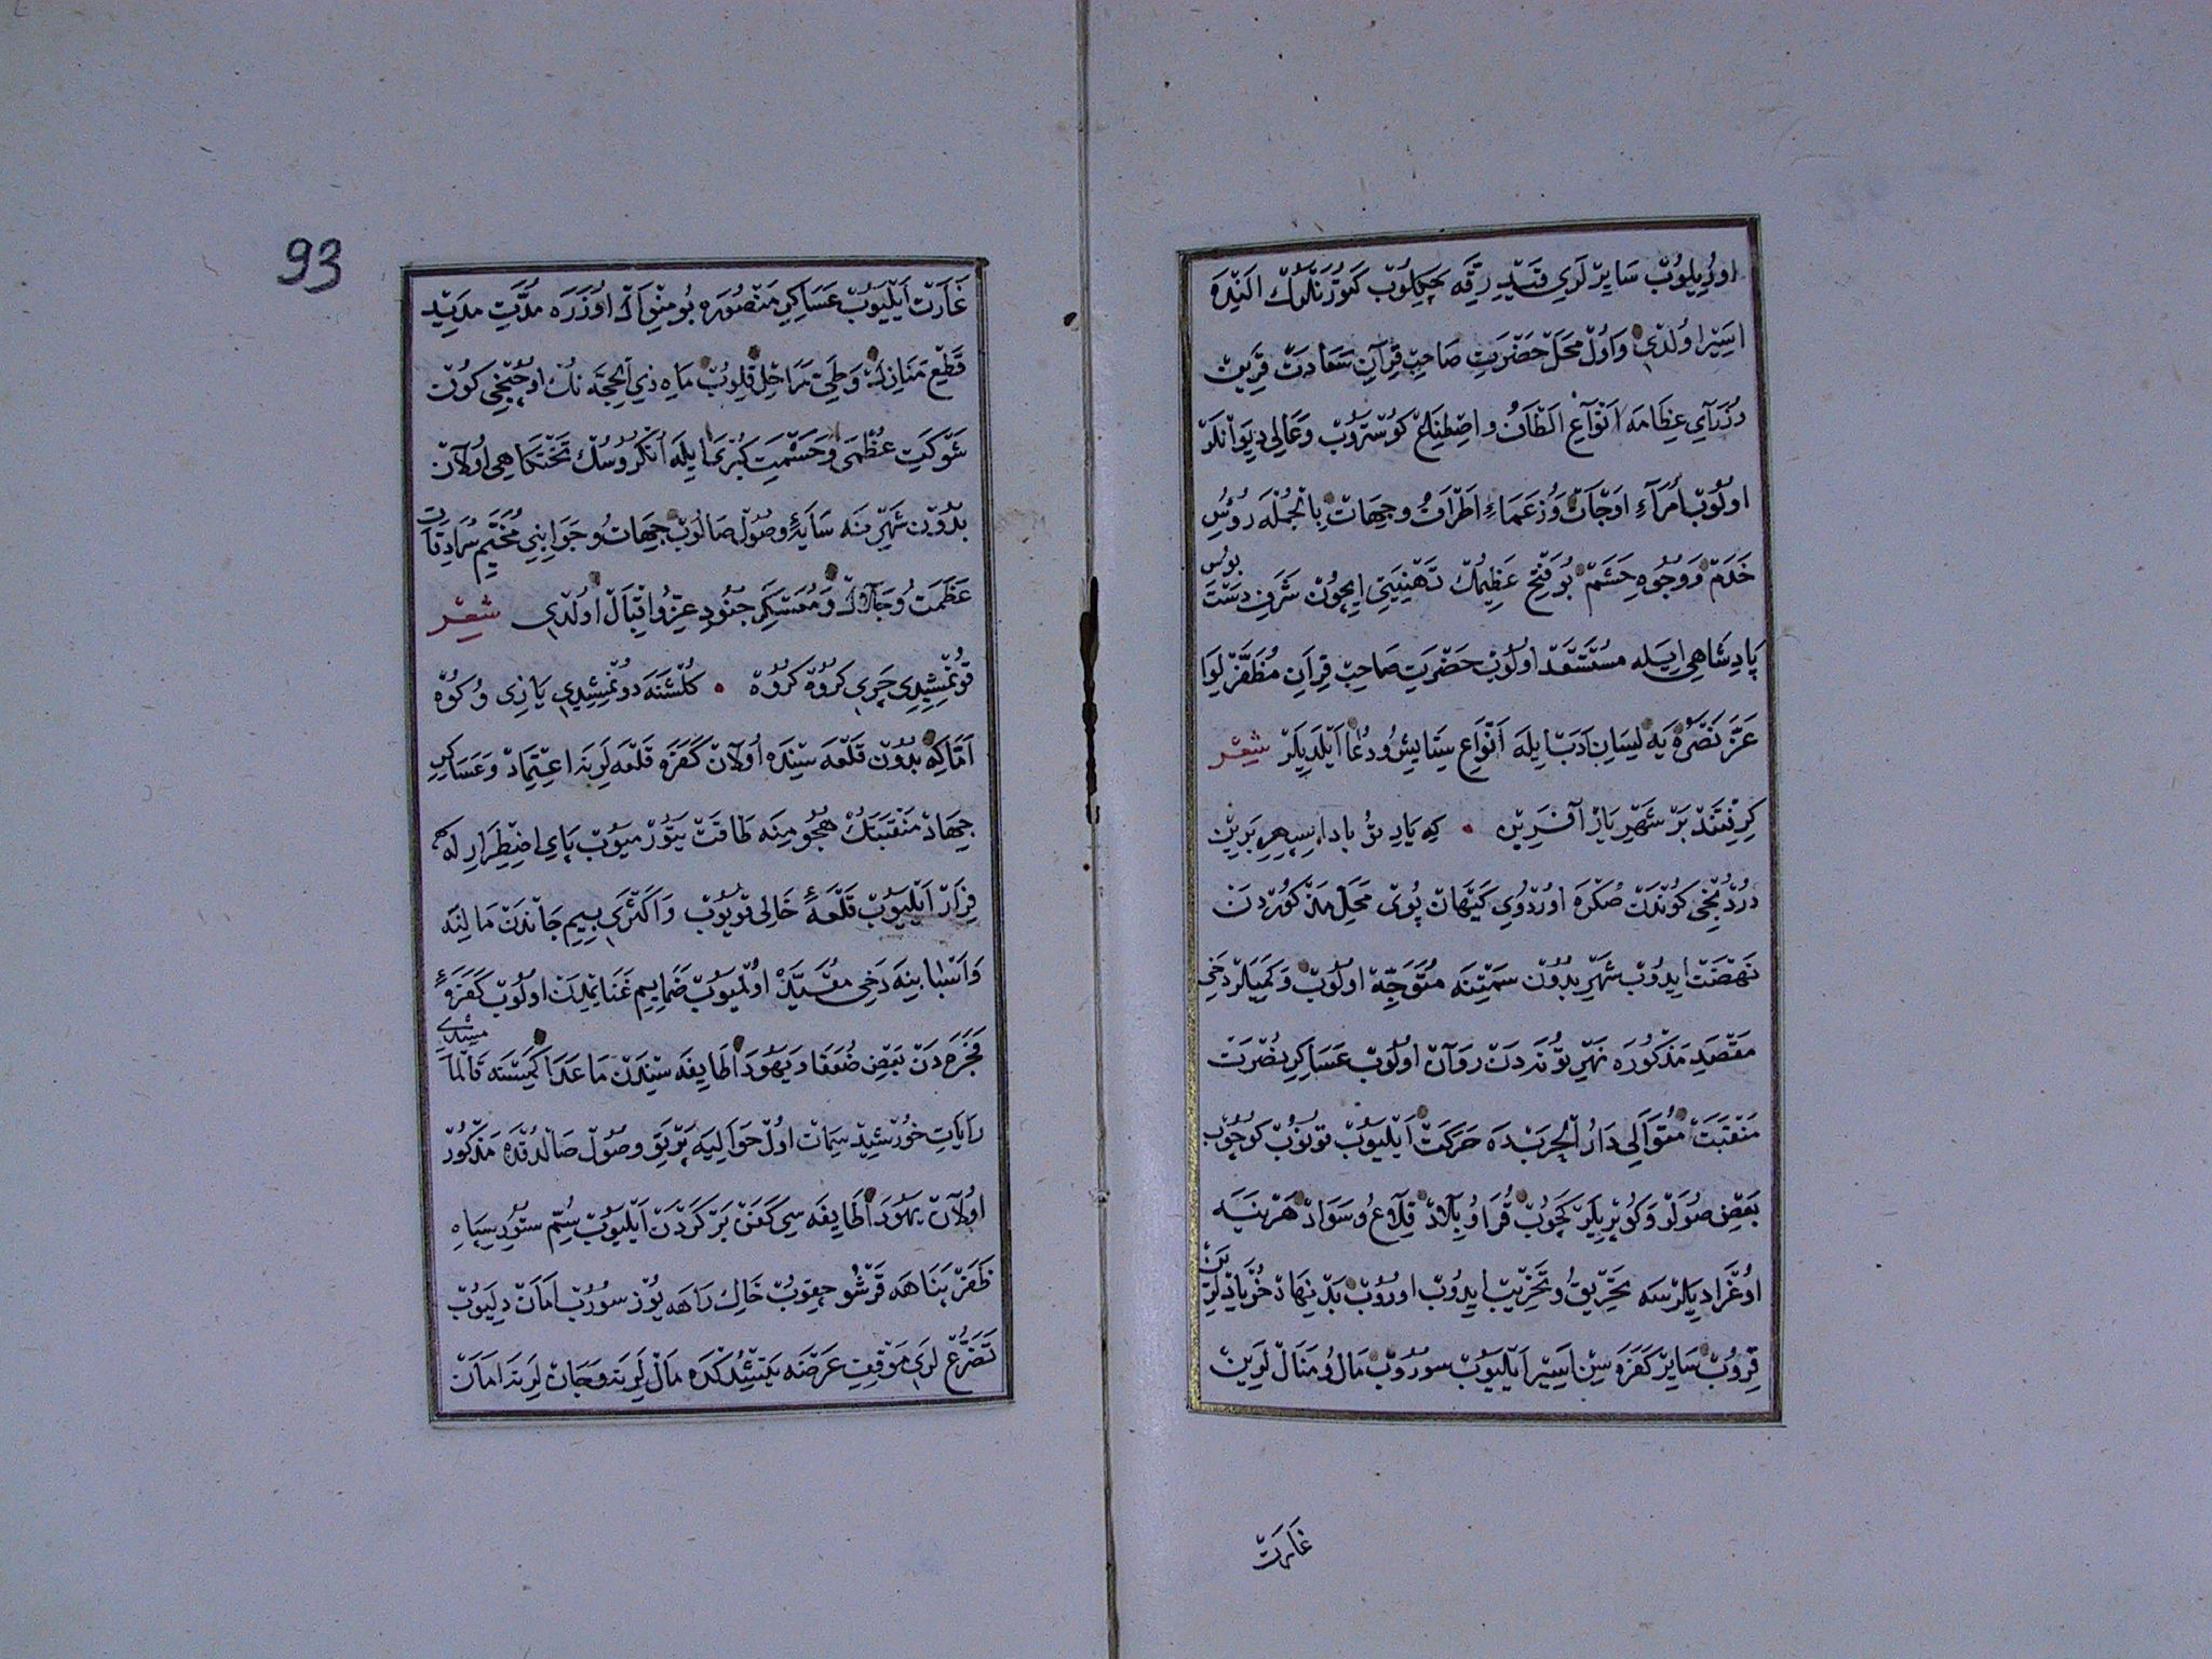 اورُيلوُبْ سَايِرْ لَرِي قَيْدِ رِقَّه چَكِلوُبْ كَتوُرَنْلَرُكْ اَلِنْدَه
اسَيِرْ اوُلْدِي وَ اوُلْ مَحَلْ حَضْرَتِ صَاحِبْ قِرَانِ سَعَادَتْ قَرِينْ
وُزَرَآيِ عِظَامَه اَنْوَاعِ اَلْطَافْ و اصْطِنَاعْ كوُسْتَروُبْ وَعَالِي دِيوَانْلَرْ
اولُوُبْ اُمَرَآءِ اَوْجَاتْ وَزُعَمَاءِ اَطْرَافْ و جِهَاتْ بِالْجُمْلَه رُؤُسِ
خَدَمْ وَ وُجُوهِ حَشَمْ بُو فَتْحِ عَظِيمُكْ تَهْنِيَتِي اِيچوُنْ شَرَفِ دَسْتْ بوُسِ
پَادِشَاهِي ايلَه مُسْتَسْعَدْ اولُوُبْ حَضْرَتِ صَاحِبْ قِرَانِ مُظَفَّرْ لِوَا
عَزَّ نَصْرُهُ يَه لِسَانِ اَدَبْ ايلَه اَنْوَاعِ سِتَايِشْ وُ دُعَا اَيْلَدِيلَرْ شِعْر
كِرِفْتَنْدْ بَرْ شَهْرِيَارْ آفَرِينْ • كِه يَارِ تُو بادا سِپِهْرِ بَرِينْ
دَرْدُنْجِي كوُنْدَنْ صُكْرَه اوُرْدوُيِ كَيْهَانْ پوُيْ مَحَلِّ مَذْكوُرْدَنْ
نَهْضَتْ ايدُوبْ شَهْرِ بُدُونْ سَمْتِنَه مُتَوَجِّهْ اولُوُبْ وَ كَمِيلَرْ دَخِي
مَقْصَدِ مَذْكوُرَه نَهْرِ تُونَه دَنْ رَوَانْ اولُوُبْ عَسَاكِرِ نُصْرَتْ
مَنْقَبَتْ مُتَوَالِي دَارُ الْحَرْبْدَه حَرَكَتْ اَيْلَيوُبْ قُونوُبْ كوُچوُبْ
بَعْضِ صوُلَرْ وَ كوُپْرِيلَرْ كَچوُبْ قُرَا وُ بِلَادْ قِلَاعُ و سَوَادْ هَرْ نَيَه
اوُغْرَادِيلَرْسَه تَحْرِيقْ وُ تَخْرِيبْ ايدُوبْ اورُوبْ بَدْنِهَادْ خُرْيَادْلَرِنْ
قِرُوبْ سَايِرْ كَفَرَه سِنْ اَسِيرْ اَيْلَيوُبْ سوُرُوبْ مَالُ و مَنَالْ لَرِينْ
غَارَتْ
93
غَارَتْ اَيْلَيوُبْ عَسَاكِرِ مَنْصُورَه بُو مِنْوَالْ اوُزَرَه مُدَّتِ مَدِيدْ
قَطْعِ مَنَازِلْ وَطَيِّ مَرَاحِلْ قِلوُبْ مَاهِ ذِي الْحِجَّه نُكْ اوُچُنْجِي كوُنْ
شَوْكَتِ عُظْمَى وَحَشْمَتِ كُبْرَى ايلَه اُنْكُروُسُكْ تَخْتكَاهِي اُولَانْ
بُدُونْ شَهْرِنَه سَايَهٔ وصُولْ صَالوُبْ جِهَاتْ وُ جَوَانِبِي مُخَيَّمِ سُرَادِقَاتِ
عَظَمَتْ وُ جَلَالْ وَ مُعَسْكَرِ جُنُودِ عِزُّ و اقْبَالْ اوُلْدِي شِعْر
قونْمِشِيدِي چَرِي كُرُوهْ كُرُوهْ • كُلْشَنَه دونْمِشِيدِي يَازِي وُ كُوهْ
اَمَّا كِه بُدُونْ قَلْعَه سِنْدَه اُولَانْ كَفَرَه قَلْعَه لَرِنَه اعْتِمَادْ وَ عَسَاكِرِ
جِهَادْ مَنْقَبَتُكْ هُجُومِنَه طَاقَتْ يَتوُرْمَيوُبْ پَايِ اضْطِرَارِ لَه
فِرَارْ اَيْلَيوُبْ قَلْعَهٔ خَالِي قويوُبْ وَ اَكْثَرِي بِيمِ جَانْدَنْ مَالِنَه
وَ اَسْبَابِنَه دَخِي مُقَيَّدْ اوُلْمَيوُبْ ضَمَايِمِ غَنَايِمْدَنْ اولُوُبْ كَفَرَهٔ
فَجَرَه دَنْ بَعْضِ ضُعَفَا وَ يَهُودَ الطَايِفَه سِنْدَنْ مَا عَدَا كِمْسَنَه قَالْمَامِشِيدِي
رَايَاتِ خوُرْشِيدْ سِمَاتْ اوُلْ حَوَالِيَه پَرْتَوِ وصُولْ صَالْدُقْدَه مَذْكوُرْ
اوُلَانْ يَهُودَ الطَايِفَه سِي كَفَنْ بَرْ كَرْدَنْ اَيْلَيوُبْ سُمِّ سُتوُرِ سِپَاهِ
ظَفَرْ پَنَاهَه قَرْشُو چِقوُبْ خَاكِ رَاهَه يوُزْ سورُوبْ اَمَانْ دِلَيوُبْ
تَضَرُّعْ لَرِي مَوْقِفِ عَرْضَه يَتِشُدُكْدَه مَالْ لَرِنَه وَ جَانْ لَرِنَه اَمَانْ